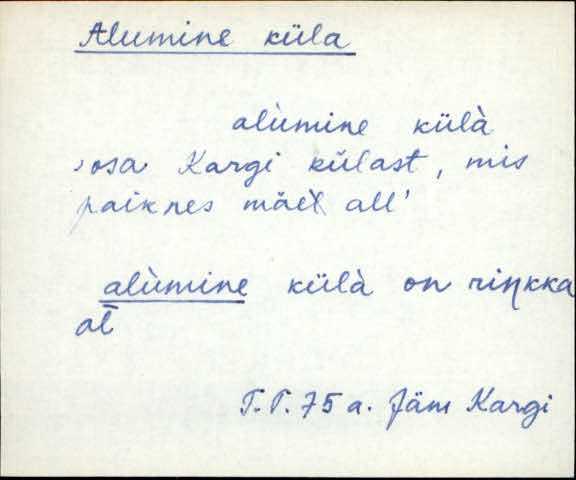 Alumine küla
alùmine külà
osa Kargi külast, mis
paiknes mäel all'
alùmine külà on riŋkka
al̄
T.T. 75 a. Jäm Kargi